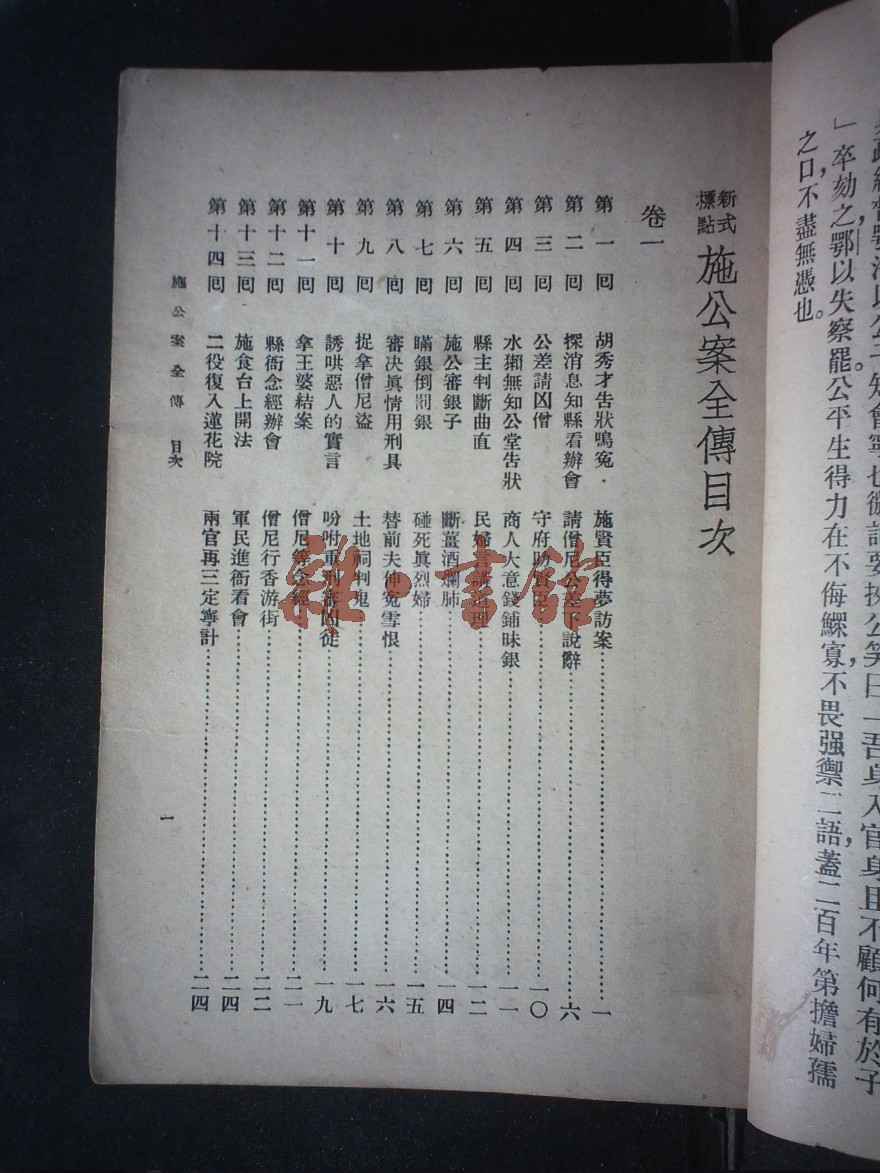 之口，不盡無憑也。
」卒劾之，鄂以失察罷。公平生得力在不侮鰥寡，不畏强禦二語，蓋二百年第擔婦孺
新式標點 施公案全傳目次
卷一
第一囘 胡秀才告狀鳴寃 施賢臣得夢訪案 一
第二囘 探消息知縣看辦會 請僧尼公差下說辭 六
第三囘 公差請凶僧 守府助賢臣 一〇
第四囘 水獺無知公堂告狀 商人大意錢鋪昧銀 一一
第五囘 縣主判斷曲直 民婦言講道理 一二
第六囘 施公審銀子 斷薑酒爛肺 一四
第七囘 瞞銀倒罰銀 碰死眞烈婦 一五
第八囘 審決眞情用刑具 替前夫伸寃雪恨 一六
第九囘 捉拿僧尼盜 土地祠判鬼 一七
第十囘 誘哄惡人的實言 吩咐重刑審凶徒 一九
第十一囘 拿王婆結案 僧尼等念經 二一
第十二囘 縣衙念經辦會 僧尼行香游街 二二
第十三囘 施食台上開法 軍民進衙看會 二四
第十四囘 二役復入蓮花院 兩官再三定寧計 二四
施公案全傳 目次
一
雜·書館